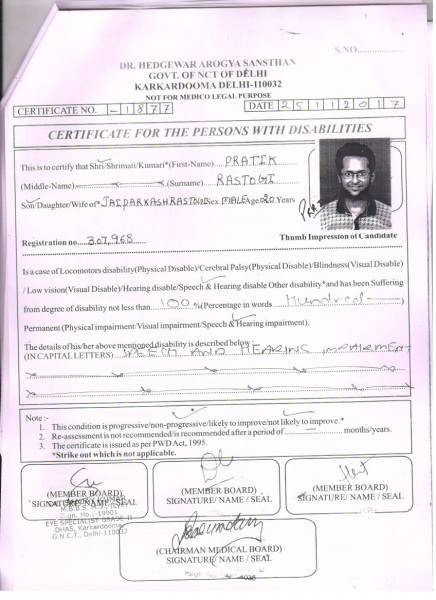 S.NO.
DR. HEDGEWAR AROGYA SANSTHAN
GOVT. OF NCT OF DELHI
KARKARDOOMA DELHI-110032
NOT FOR MEDICO LEGAL PURPOSE
CERTIFICATE NO. -1877 DATE 25112017
CERTIFICATE FOR THE PERSONS WITH DISABILITIES
This is to certify that Shri/Shrimati/Kumari*(First-Name) PRATIK
(Middle-Name) (Surname) RASTOGI
Son/Daughter/Wife of* JAIPARKASH RASTOGI Sex MALE Age 20 Years
Registration no. 307,968 Thumb Impression of Candidate
Is a case of Locomotors disability(Physical Disable)/Cerebral Palsy(Physical Disable)/Blindness(Visual Disable)
/ Low vision(Visual Disable)/Hearing disable/Speech & Hearing disable Other disability*and has been Suffering
from degree of disability not less than 100 %(Percentage in words Hundred )
Permanent (Physical impairment/Visual impairment/Speech & Hearing impairment).
The details of his/her above mentioned disability is described below :
(IN CAPITAL LETTERS) SPEECH AND HEARING IMPAIRMENT
Note :-
1. This condition is progressive/non-progressive/likely to improve/not likely to improve.*
2. Re-assessment is not recommended/is recommended after a period of months/years.
3. The certificate is issued as per PWD Act, 1995.
*Strike out which is not applicable.
(MEMBER BOARD) (MEMBER BOARD) (MEMBER BOARD)
SIGNATURE/ NAME / SEAL SIGNATURE/ NAME / SEAL SIGNATURE/ NAME / SEAL
EYE SPECIALIST
DHAS, Karkardooma
G.N.C.T., Delhi-110032
(CHAIRMAN MEDICAL BOARD)
SIGNATURE/ NAME / SEAL